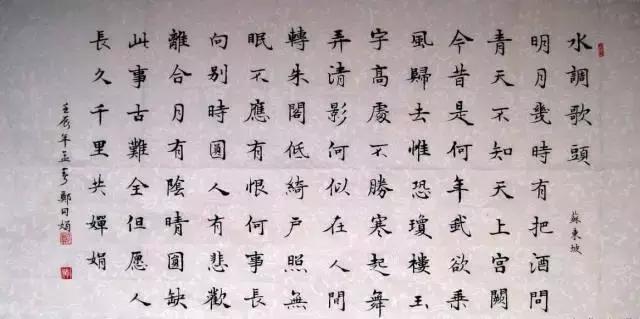 水調歌頭
蘇東坡
明月幾時有把酒問
青天不知天上宮闕
今昔是何年我欲乘
風歸去惟恐瓊樓玉
宇高處不勝寒起舞
弄清影何似在人間
轉朱閣低綺户照無
眠不應有恨何事長
向別時圓人有悲歡
離合月有陰晴圓缺
此事古難全但愿人
長久千里共嬋娟
壬辰年孟